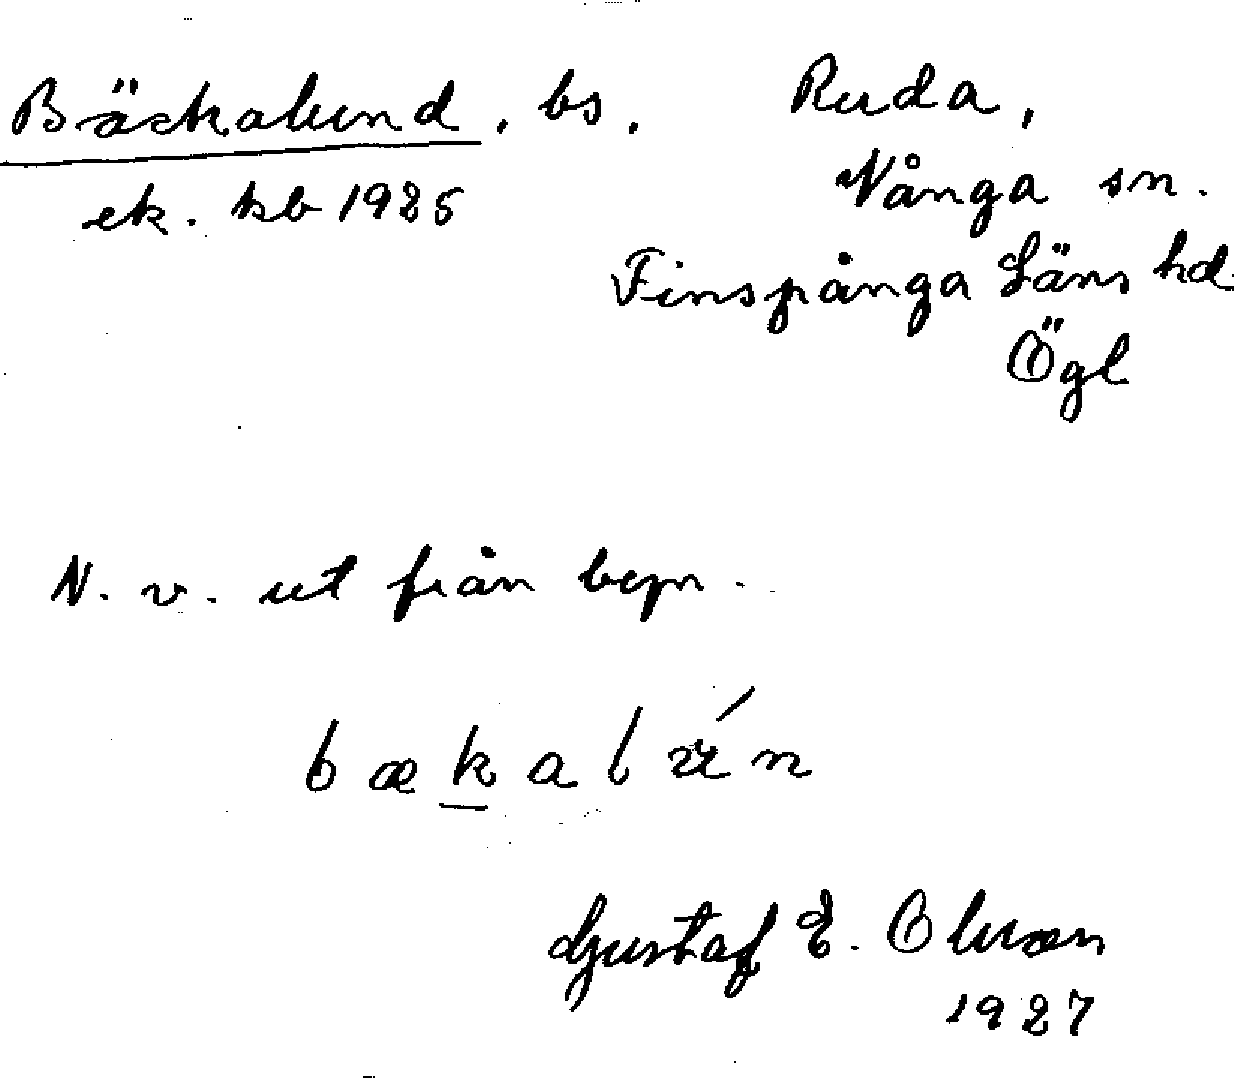 Bäckalund, bs. Ruda,
ek. kb 1925 Vånga sn.
Finspånga Läns hd.
Ögl
N. v. ut från byn.
bækalún
Gustaf E. Olsson
1927